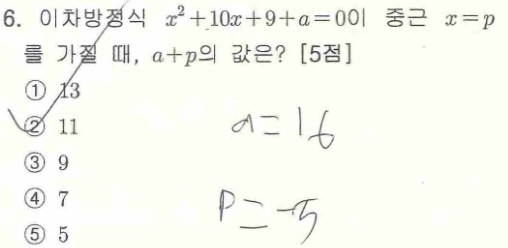 6. 이차방정식 x²+10x+9+a=0이 중근 x=p
를 가질 때, a+p의 값은? [5점]
① 13
② 11
a=16
③ 9
④ 7
p=-5
⑤ 5